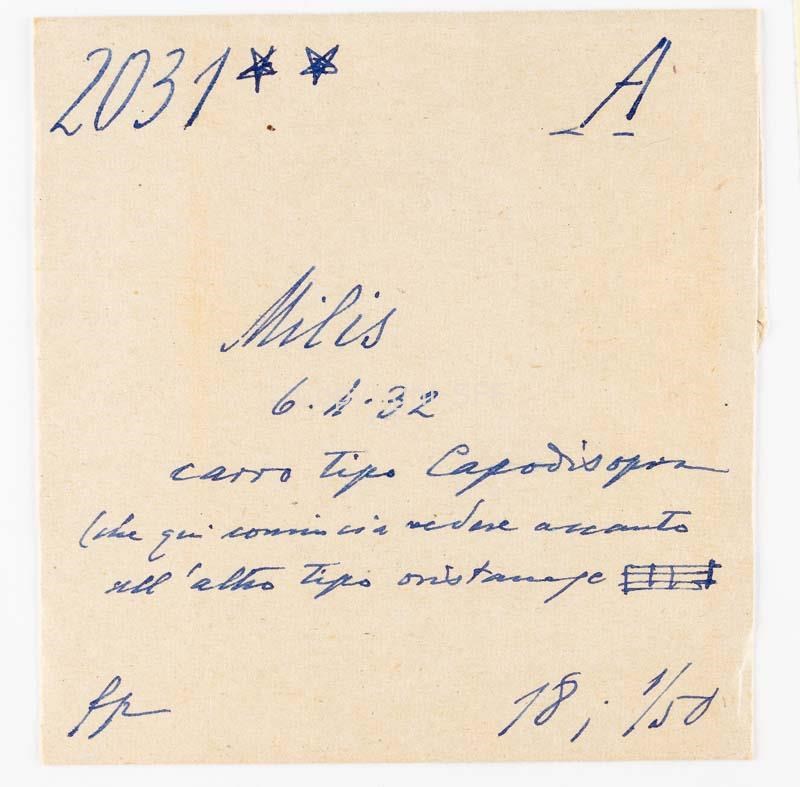 2031 ** A
Milis
6.4.32
carro tipo Capodisopra
(che qui comincia vedere accanto
all'altro tipo oristanese
fp 18; 1/50